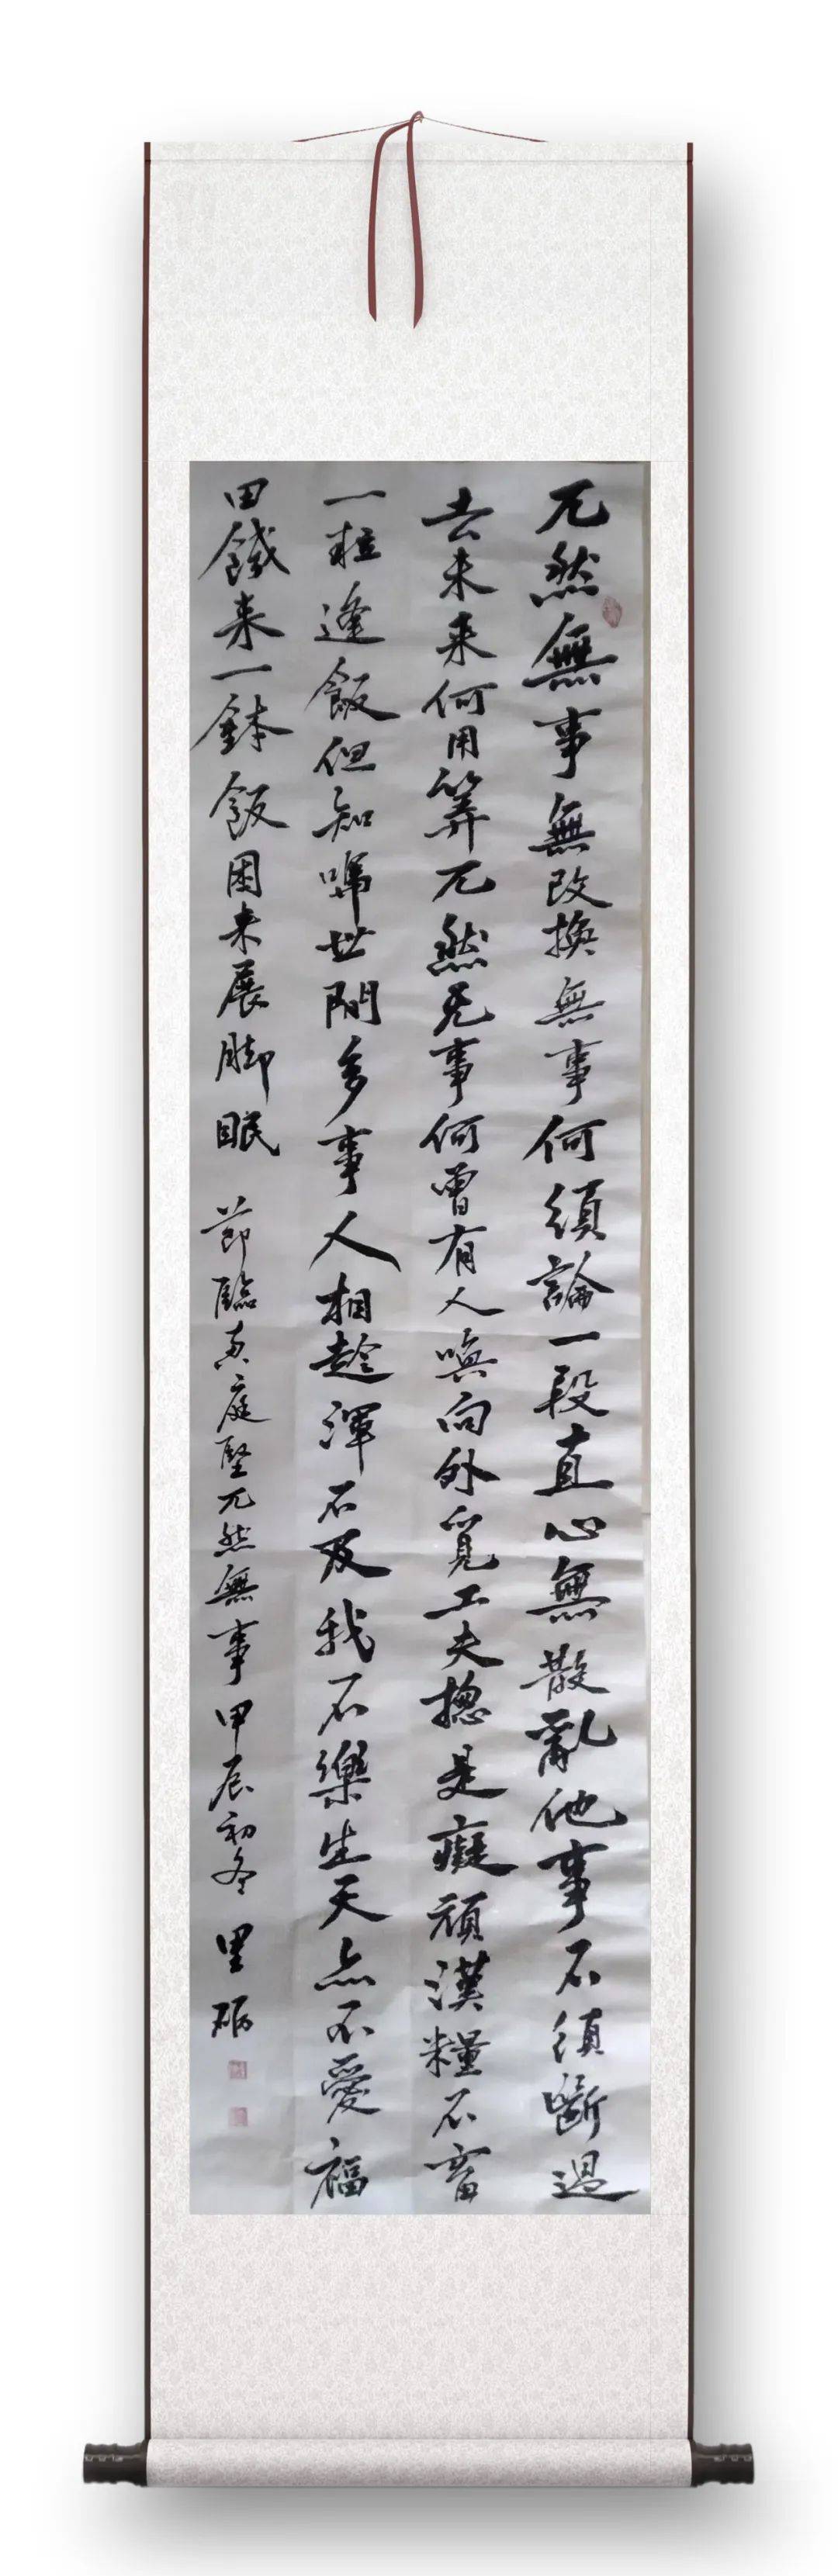 兀然無事無改換無事何須論一段直心無散亂他事不須斷過
去未来何用筭兀然无事何曾有人喚向外覓工夫揔是癡頑漢糧不畜
一粒逢飯但知嗎世間多事人相趁渾不及我不樂生天亦不愛福
田饑来一鉢飯困来展脚眠 節臨黄庭堅兀然無事甲辰初冬 里砺